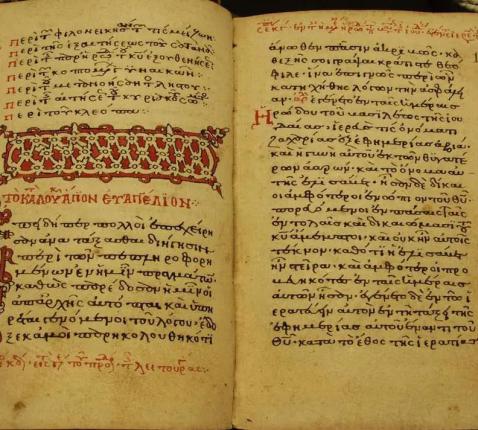 Περὶ τῶν φιλονεικησάντων τίς μείζων
Περὶ τῆς ἐξαιτήσεως τοῦ σατανᾶ
Περὶ τοῦ ἡρώδου
Περὶ τῶν κοπτομένων γυναικῶν
Περὶ τοῦ μετανοήσαντος ληστοῦ
Περὶ τῆς αἰτήσεως τοῦ κυριακοῦ σώματος
Περὶ τοῦ κλεόπα
τὸ κατὰ λουκᾶν ἅγιον εὐαγγέλιον
Ἐπειδήπερ πολλοὶ ἐπεχείρη
σαν ἀνατάξασθαι διήγησιν
περὶ τῶν πεπληροφορη
μένων ἐν ἡμῖν πραγμάτων.
καθὼς παρέδοσαν ἡμῖν οἱ
ἀπαρχῆς αὐτόπται καὶ ὑπη
ρέται γενόμενοι τοῦ λόγου. ἔδο
ξε κἀμοὶ παρηκολουθηκότι
ἄνωθεν πᾶσιν ἀκριβῶς. κα
θεξῆς σοι γράψαι κράτιστε θεό
φιλε. ἵνα ἐπιγνῷς περὶ ὧν
κατηχήθης λόγων τὴν ἀσφάλει
αν. ἐγένετο ἐν ταῖς ἡμέραις
Ἡρώδου τοῦ βασιλέως τῆς ἰου
δαίας. ἱερεύς τις ὀνόματι
ζαχαρίας ἐξ ἐφημερίας ἀβιά.
καὶ ἡ γυνὴ αὐτοῦ ἐκ τῶν θυγατέ
ρων ἀαρών. καὶ τὸ ὄνομα αὐ
τῆς ἐλισάβετ. ἦσαν δὲ δίκαι
οι ἀμφότεροι ἐνώπιον τοῦ θυ
πορευόμενοι ἐν πάσαις ταῖς
ἐντολαῖς καὶ δικαιώμασι τοῦ
κυ ἄμεμπτοι. καὶ οὐκ ἦν αὐτοῖς
τέκνον. καθότι ἡ ἐλισάβετ
ἦν στεῖρα. καὶ ἀμφότεροι προ
βεβηκότες ἐν ταῖς ἡμέραις
αὐτῶν ἦσαν. ἐγένετο δὲ ἐν τῷ ἱ
ερατεύειν αὐτὸν ἐν τῇ τάξει τῆς
ἐφημερίας αὐτοῦ ἔναντι τοῦ
θυ. κατὰ τὸ ἔθος τῆς ἱερατεί